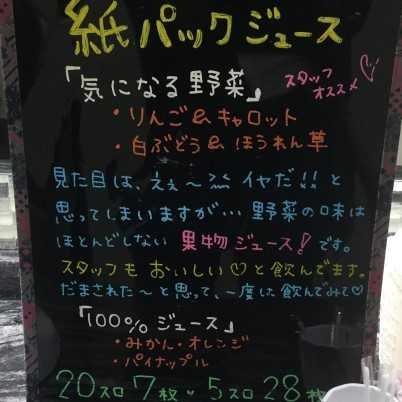 紙パックジュース
「気になる野菜」
スタッフ
オススメ♡
・りんご&キャロット
・白ぶどう&ほうれん草
見た目は、えぇ〜 イヤだ!!と
思ってしまいますが…野菜の味は
ほとんどしない 果物ジュース!です。
スタッフも おいしい♡と飲んでます。
だまされた〜と思って、一度 飲んでみて♡
「100%ジュース」
・みかん・オレンジ
・パイナップル
20スロ7枚・5スロ28枚